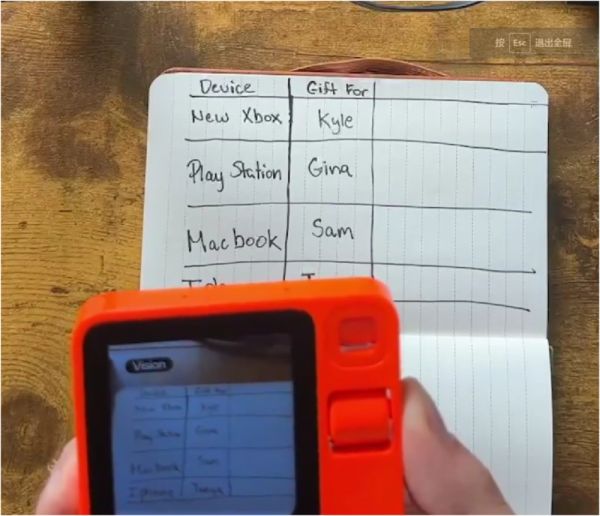 按 Esc 退出全屏
Device Gift For
New Xbox Kyle
Play Station Gina
Macbook Sam
Vision
Device Gift For
New Xbox Kyle
Play Station Gina
Macbook Sam
Iphone Tanya